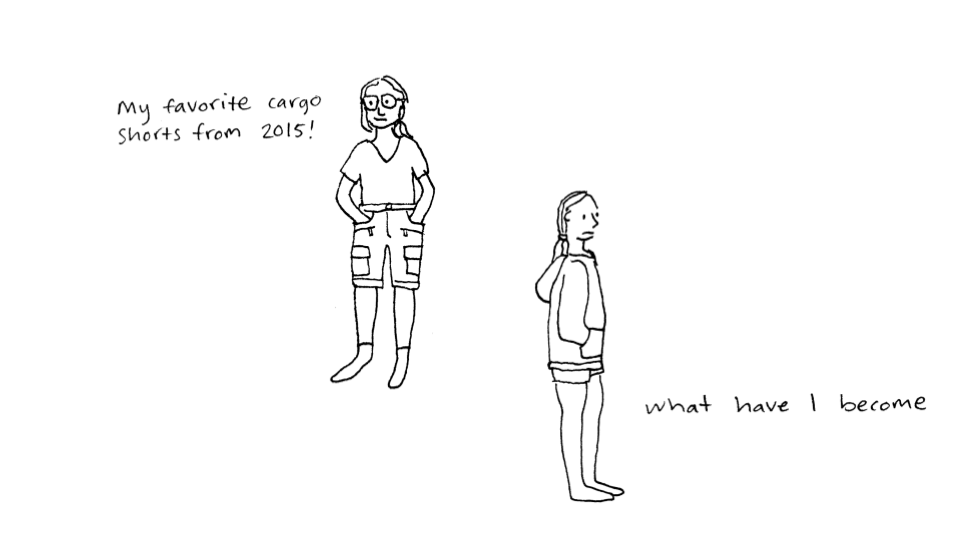 My favorite cargo
shorts from 2015!
what have I become